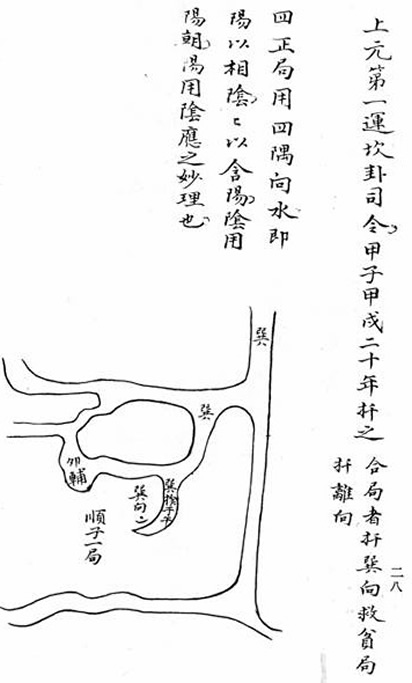 上元第一運坎卦司令甲子甲戌二十年扦之
合局者扦巽向救貧局
扦離向
二八
四正局用四隅向水即
陽以相陰々以含陽陰用
陽朝陽用陰應之妙理也
巽
巽
卯輔
巽向
順子一局